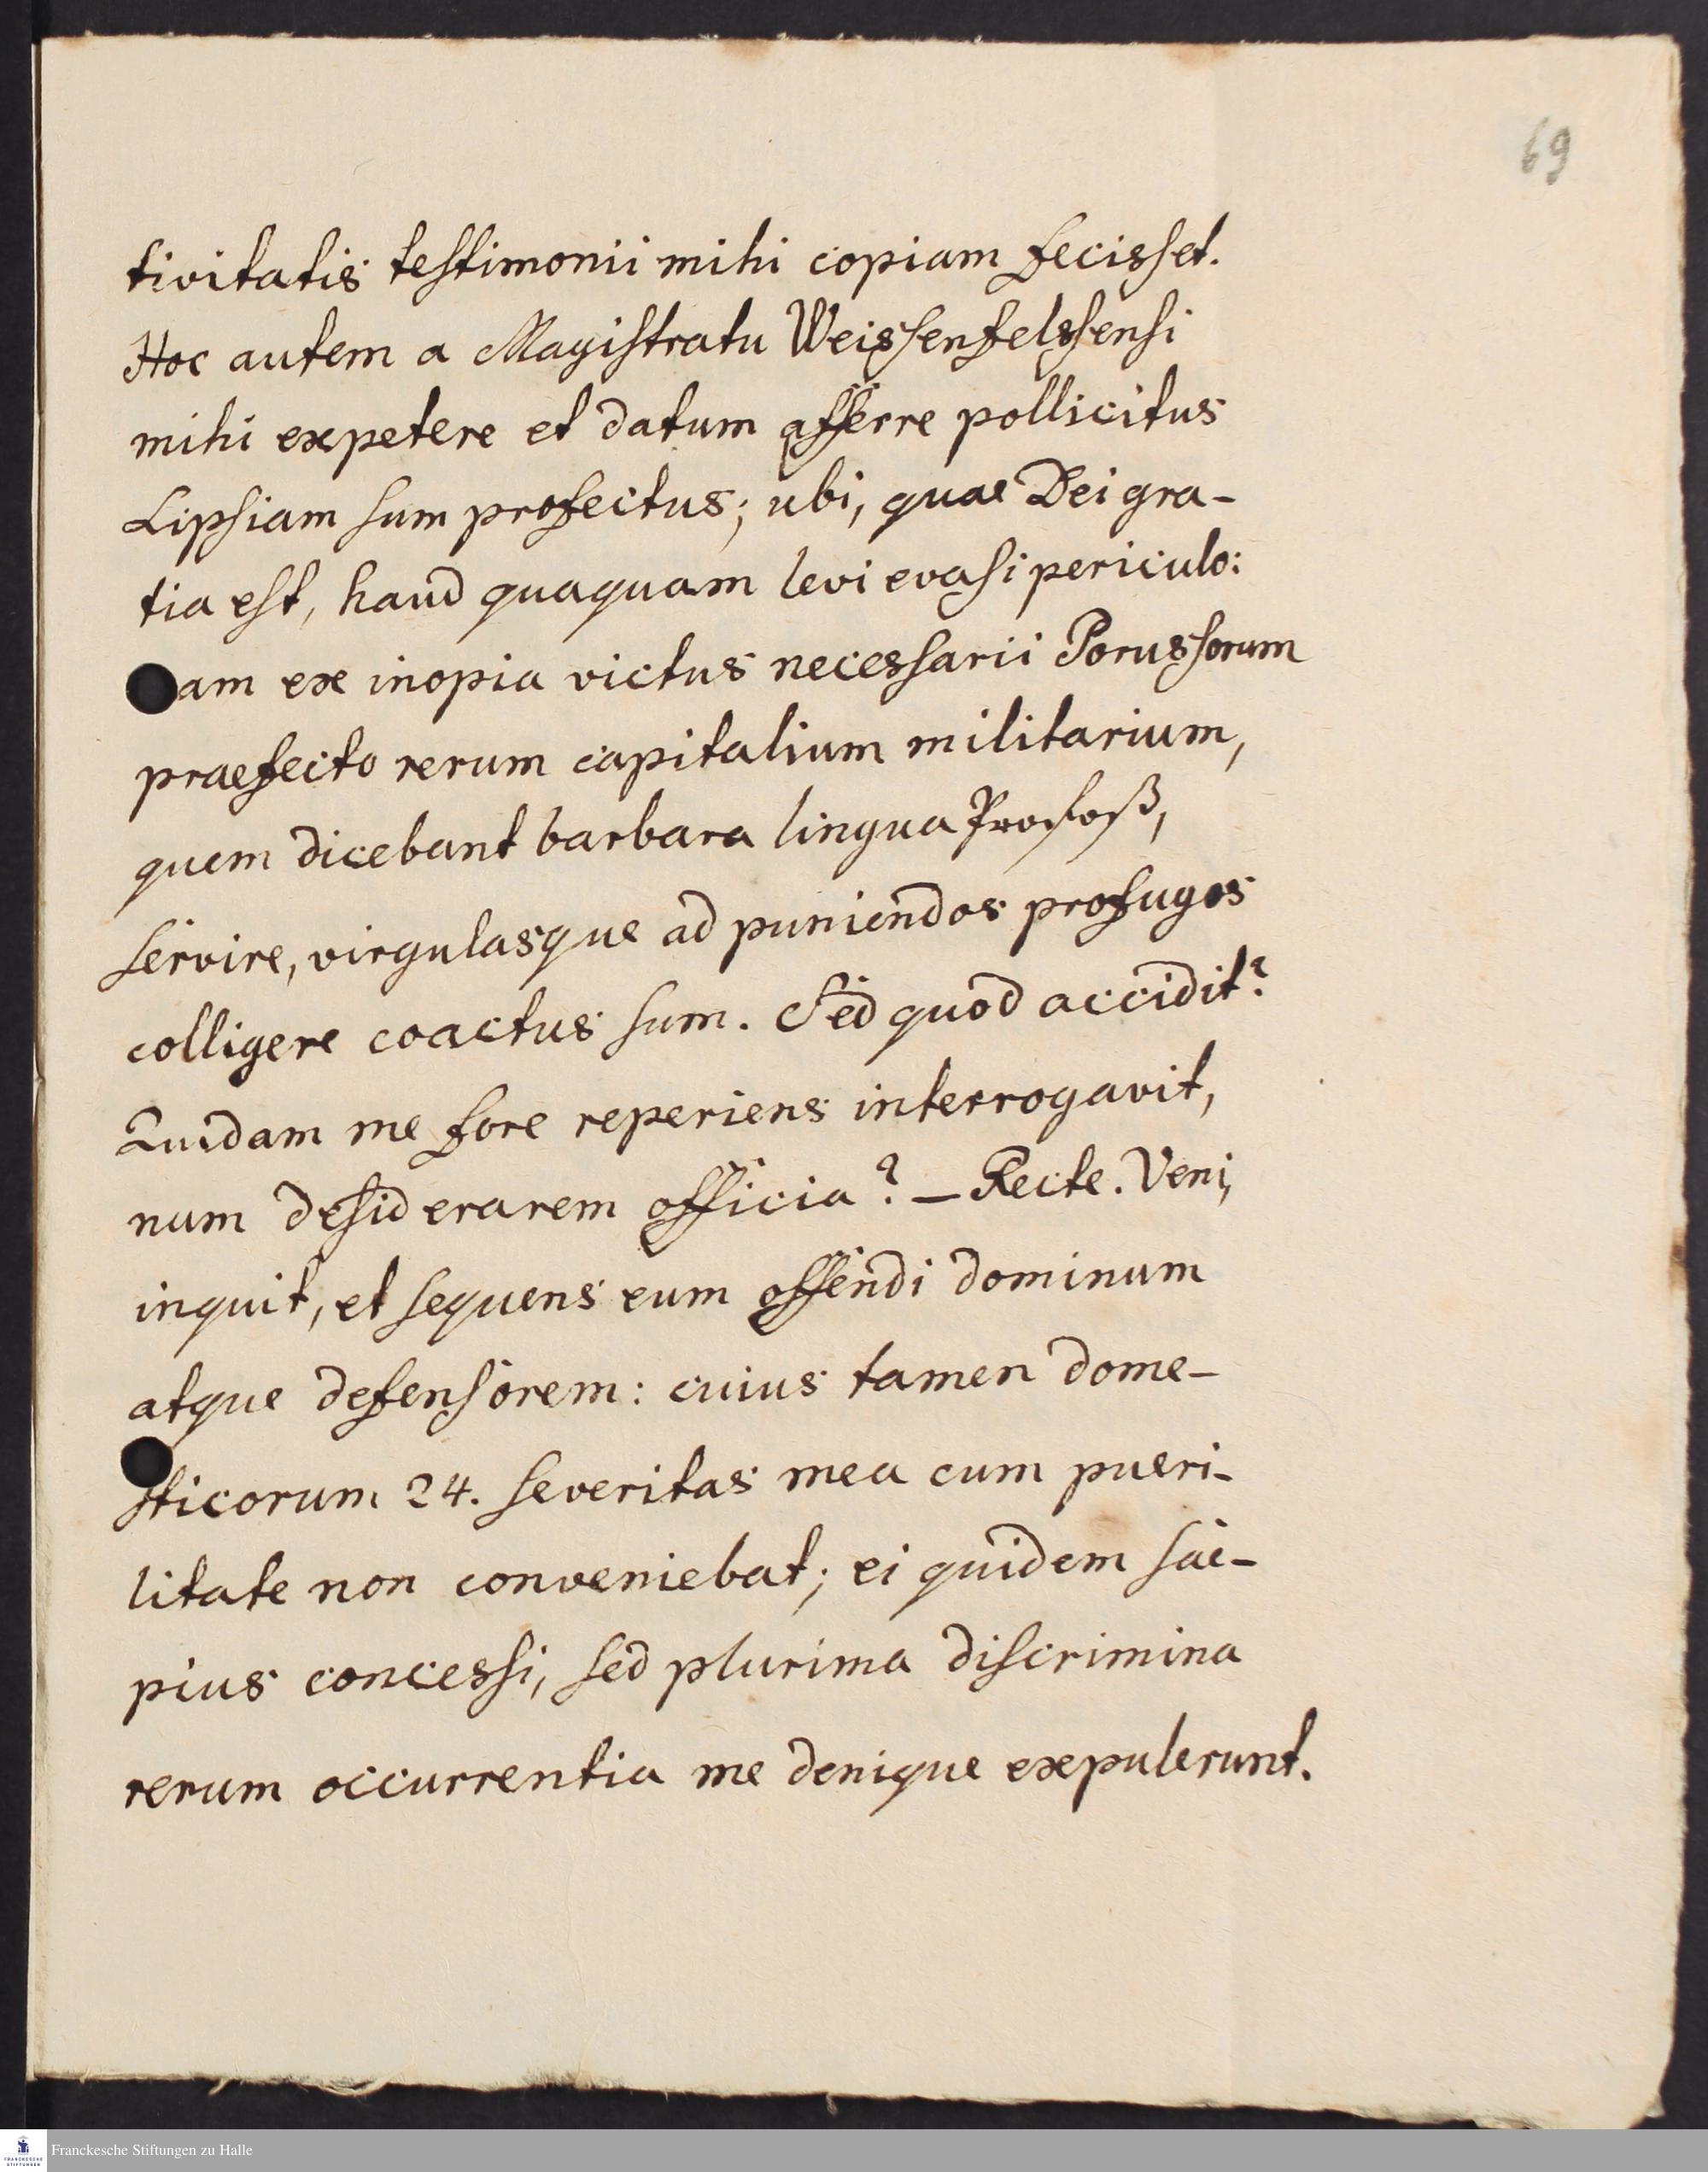 69
tivitatis testimonii mihi copiam fecisset.
Hoc autem a Magistratu Weissenfelssensi
mihi expetere et datum afferre pollicitus
Lipsiam sum profectus; ubi, quae Dei gra-
tia est, haud quaquam levi evasi periculo:
am ex inopia victus necessarii Porussorum
praefecto rerum capitalium militarium,
quem dicebant barbara lingua Profoß,
servire, virgulasque ad puniendos profugos
colligere coactus sum. Sed quod accidit?
Quidam me fore reperiens interrogavit,
num desiderarem officia? – Recte. Veni,
inquit, et sequens eum offendi dominum
atque defensorem: cuius tamen dome-
sticorum 24. severitas mea cum pueri-
litate non conveniebat; ei quidem sae-
pius concessi, sed plurima discrimina
rerum occurrentia me denique expulerunt.
FRANCKESCHE
STIFTUNGEN
Franckesche Stiftungen zu Halle